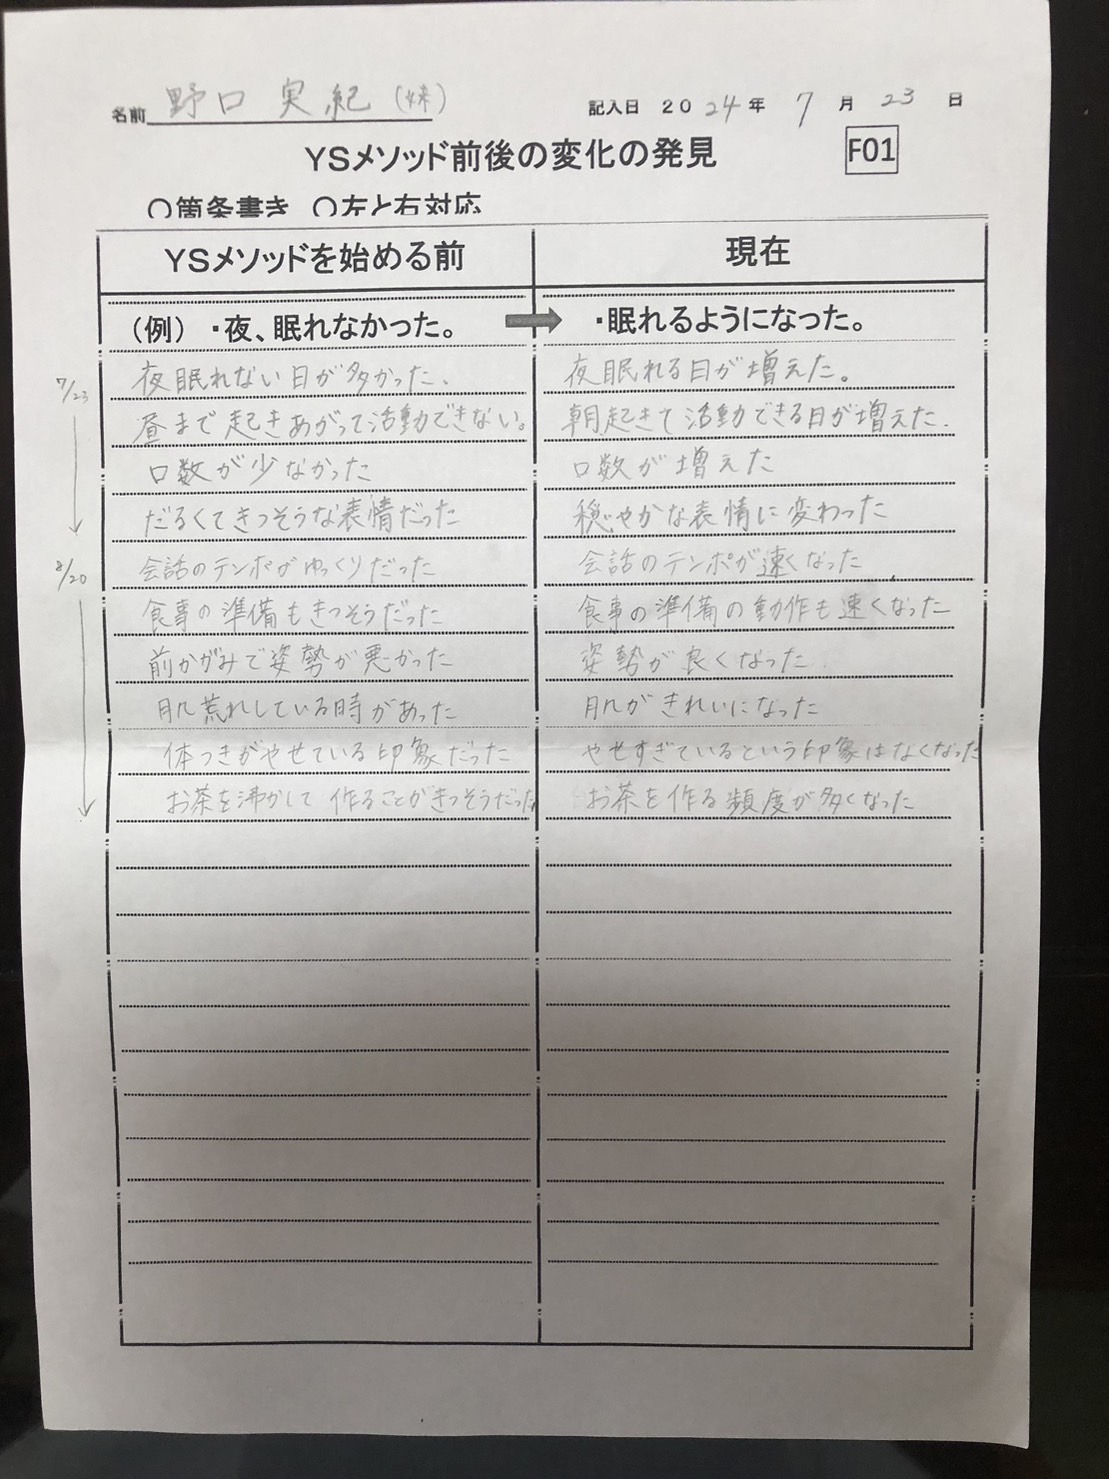 名前 野口 実紀 (妹) 記入日 2024年 7月 23日
YSメソッド前後の変化の発見 F01
〇箇条書き 〇左と右対応
YSメソッドを始める前 現在
(例) ・夜、眠れなかった。 ・眠れるようになった。
7/23 夜眠れない日が多かった、 夜眠れる日が増えた。
昼まで起きあがって活動できない。 朝起きて活動できる日が増えた.
口数が少なかった 口数が増えた
だるくてきつそうな表情だった 穏やかな表情に変わった
8/20 会話のテンポがゆっくりだった 会話のテンポが速くなった
食事の準備もきつそうだった 食事の準備の動作も速くなった
前かがみで姿勢が悪かった 姿勢が良くなった
肌荒れしている時があった 肌がきれいになった
体つきがやせている印象だった やせすぎているという印象はなくなった
お茶を沸かして作ることがきつそうだった お茶を作る頻度が多くなった